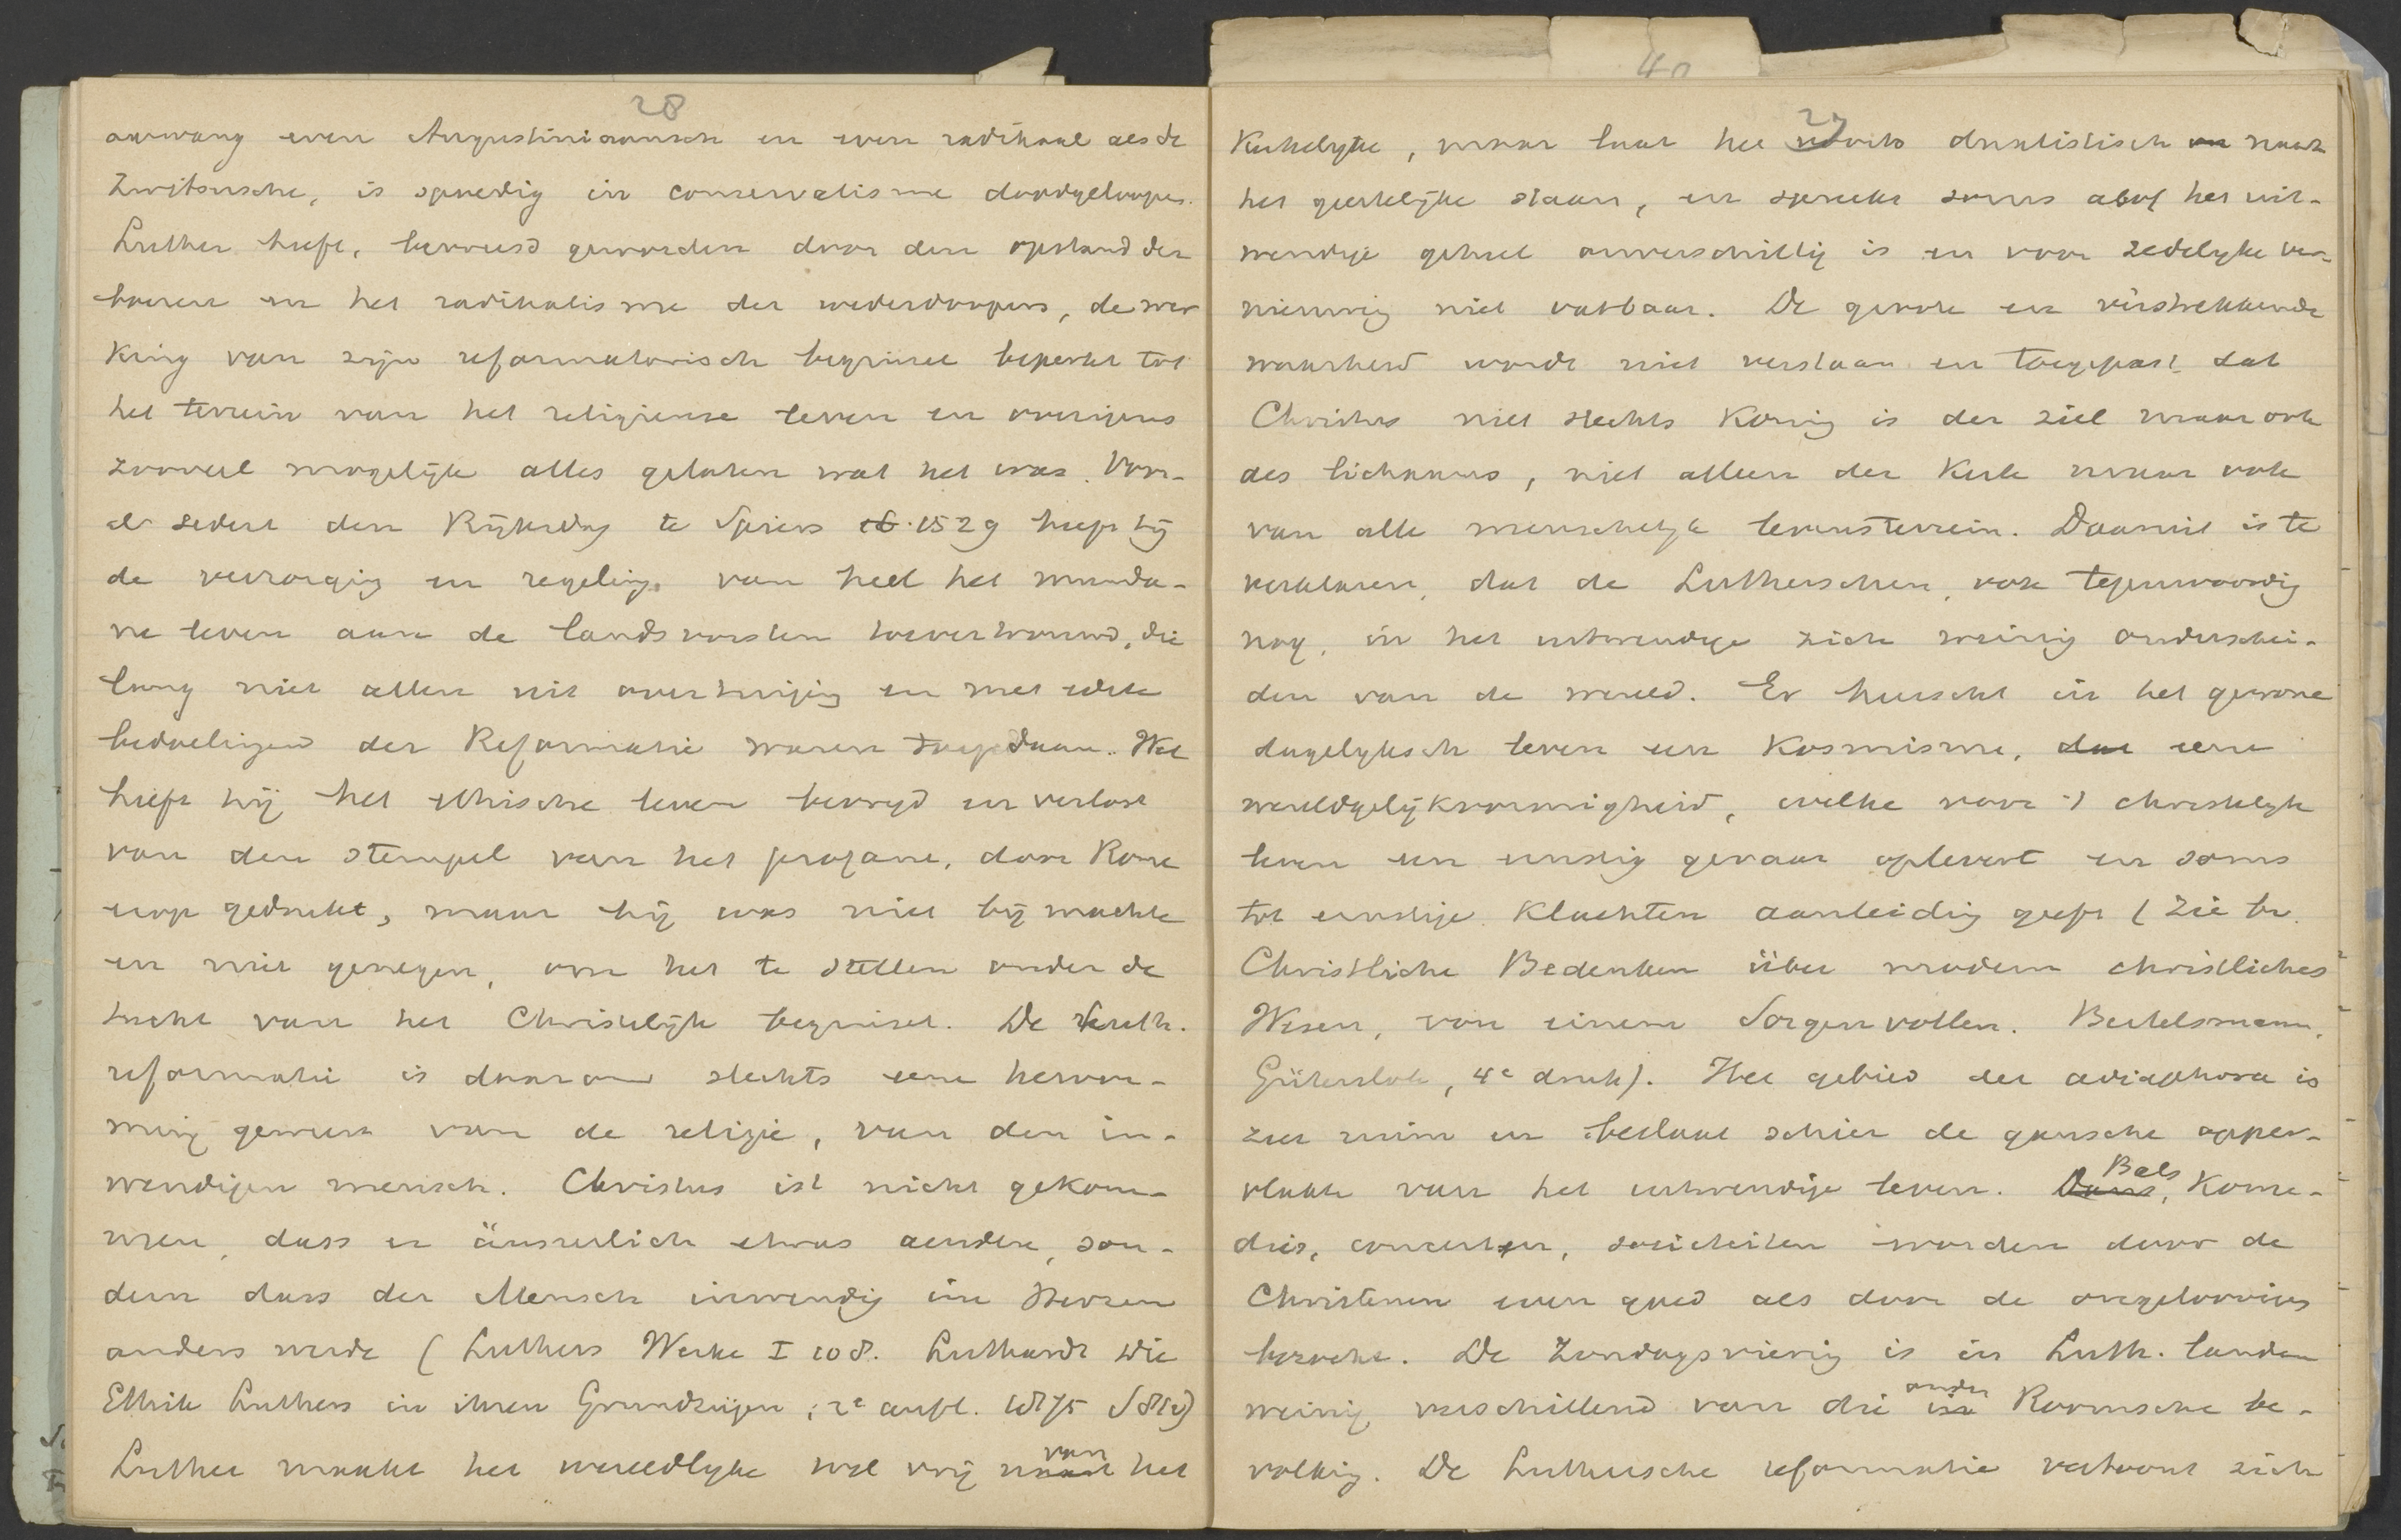 28
aanvang even Augustiniaansch en even radikaal als de
Zwitsersche, is spoedig in conservatisme doodgeloopen.
Luther heeft, bevreesd geworden door den opstand der
boeren en het radikalisme der wederdoopers, de wer
king van zijn reformatorisch beginsel beperkt tot
het terrein van het religieuse leven en overigens
zooveel mogelijk alles gelaten wat het was. Voor-
al sedert den Rijksdag te Spiers 1529 heeft hij
de verzorging en regeling van heel het munda-
ne leven aan de landsvorsten toevertrouwd, die
lang niet allen uit overtuiging en met edele
bedoelingen der Reformatie waren toegedaan. Wel
heeft hij het ethische leven bevrijd en verlost
van den stempel van het profane, door Rome
erop gedrukt, maar hij was niet bij machte
en niet genegen, om het te stellen onder de
tucht van het Christelijk beginsel. De Luth.
reformatie is daarom slechts eene hervor-
ming geweest van de religie, van den in-
wendigen mensch. Christus ist nicht gekom-
men, dass er äusserlich etwas aendere, son-
dern dass der Mensch inwendig im Herzen
anders werde (Luthers Werke I 108. Luthardt Die
Ethik Luthers in ihren Grundzügen, 2e aufl. 1875 S 81v)
Luther maakt het wereldlijke wel vrij van het
40
29
Kerkelijke, maar laat het dualistisch naast
het geestelijke staan, en spreekt soms alsof het uit-
wendige geheel onverschillig is en voor zedelyke ver-
nieuwing niet vatbaar. De groote en vèrstrekkende
waarheid wordt niet verstaan en toegepast dat
Christus niet slechts Koning is der ziel maar ook
des lichaams, niet alleen der Kerk maar ook
van alle menschelyk levensterrein. Daaruit is te
verklaren, dat de Lutherschen, ook tegenwoordig
nog, in het uitwendige zich weinig onderschei-
den van de wereld. Er heerscht in het gewone
dagelyksch leven een Kosmisme, eene
wereldgelijkvormigheid, welke voor 't christelyk
leven een ernstig gevaar oplevert en soms
tot ernstige Klachten aanleiding geeft (zie bv.
Christliche Bedenken über modern christliches
Wesen, von einem Sorgenvollen. Bertelsmann,
Gütersloh, 4e druk). Het gebied der adiaphora is
zeer ruim en beslaat schier de gansche opper-
vlakte van het uitwendige leven. Bals, Kome-
dies, concerten, sociëteiten worden door de
Christenen even goed als door de ongeloovigen
bezocht. De Zondagsviering is in Luth. landen
weinig verschillend van die onder Roomsche be-
volking. De Luthersche reformatie vertoont zich